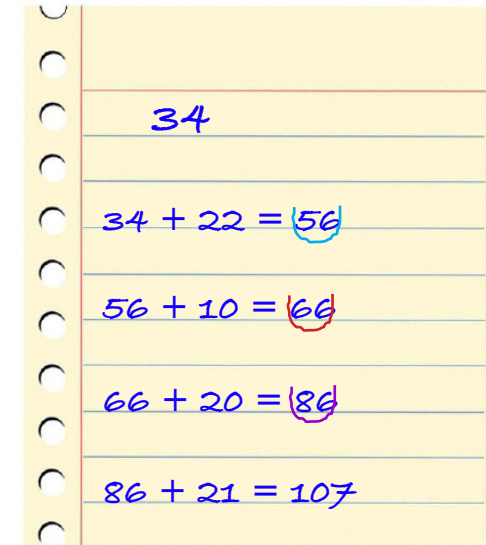 34
34 + 22 = 56
56 + 10 = 66
66 + 20 = 86
86 + 21 = 107